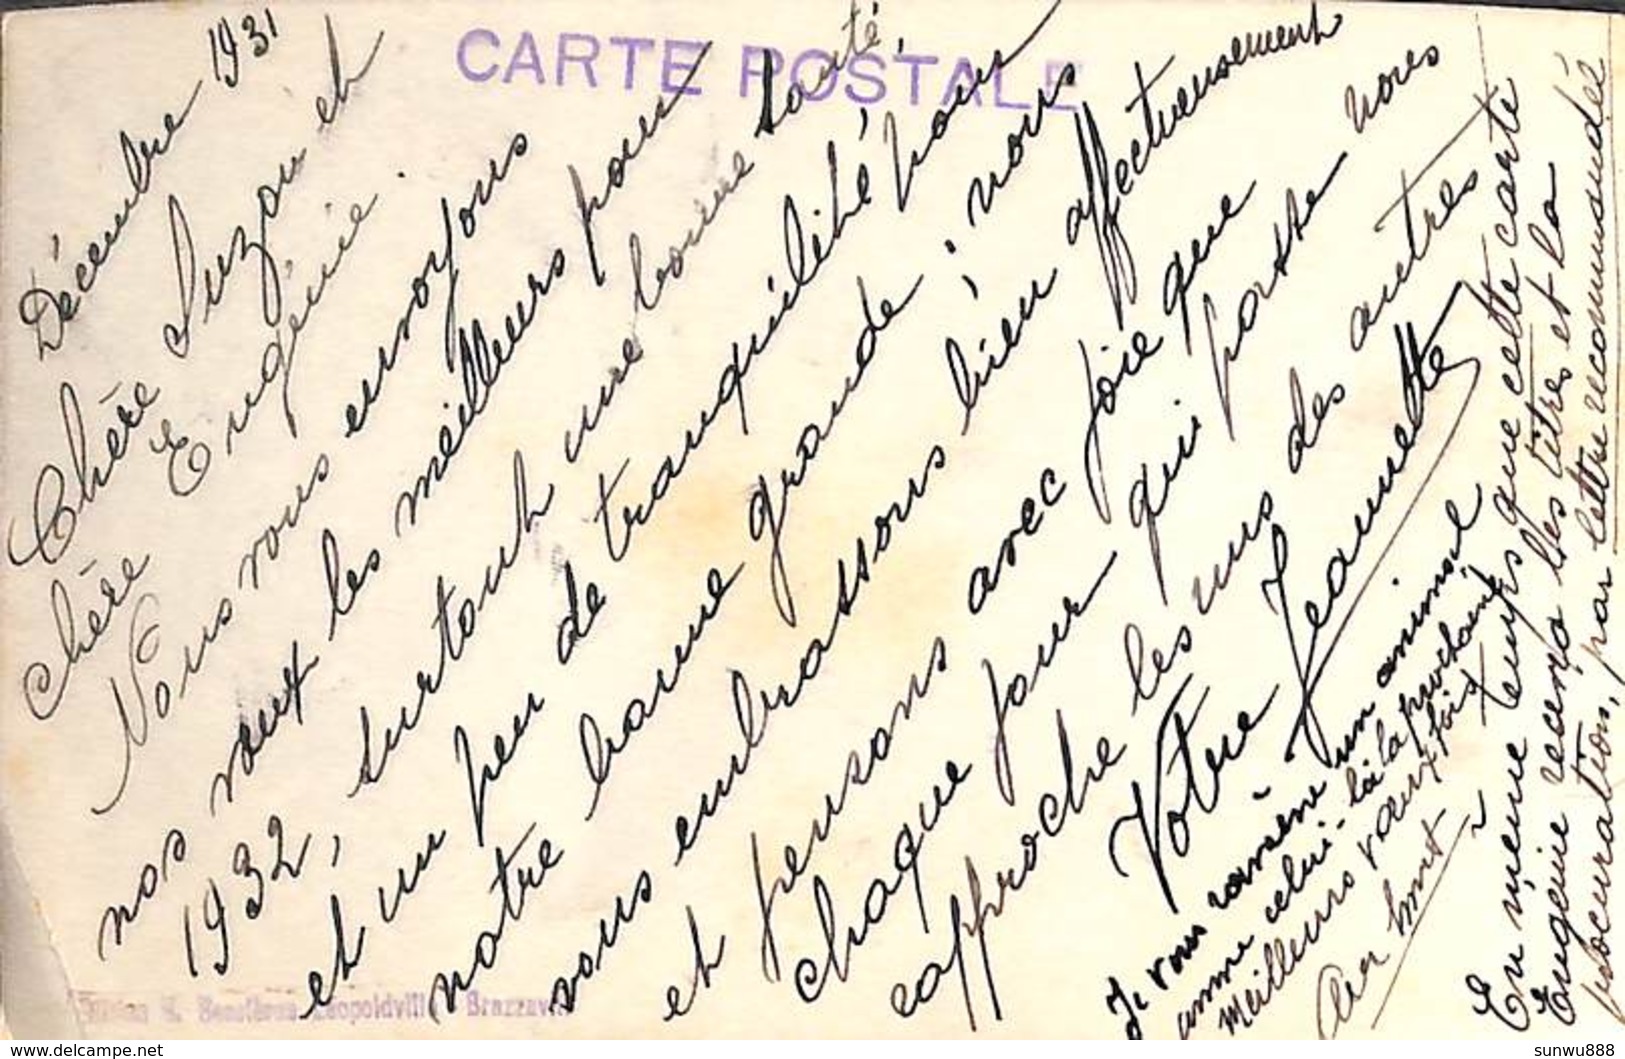 CARTE POSTALE
Décembre 1931
Chère Suzon et
chère Eugénie.
Nous vous envoyons
nos vœux les meilleurs pour
1932, surtout une bonne santé,
et un peu de tranquilité pour
notre bonne grande; nous
vous embrassons bien affectueusement
et pensons avec joie que
chaque jour qui passe nous
rapproche les uns des autres
Votre Jeannette
Je vous ramène un animal
comme celui-là la prochaine
fois
Meilleurs vœux
En même temps que cette carte
Eugénie recevra les titres et la
procuration, par lettre recommandée
Leopoldville Brazzaville
delcampe.net
sunwu888